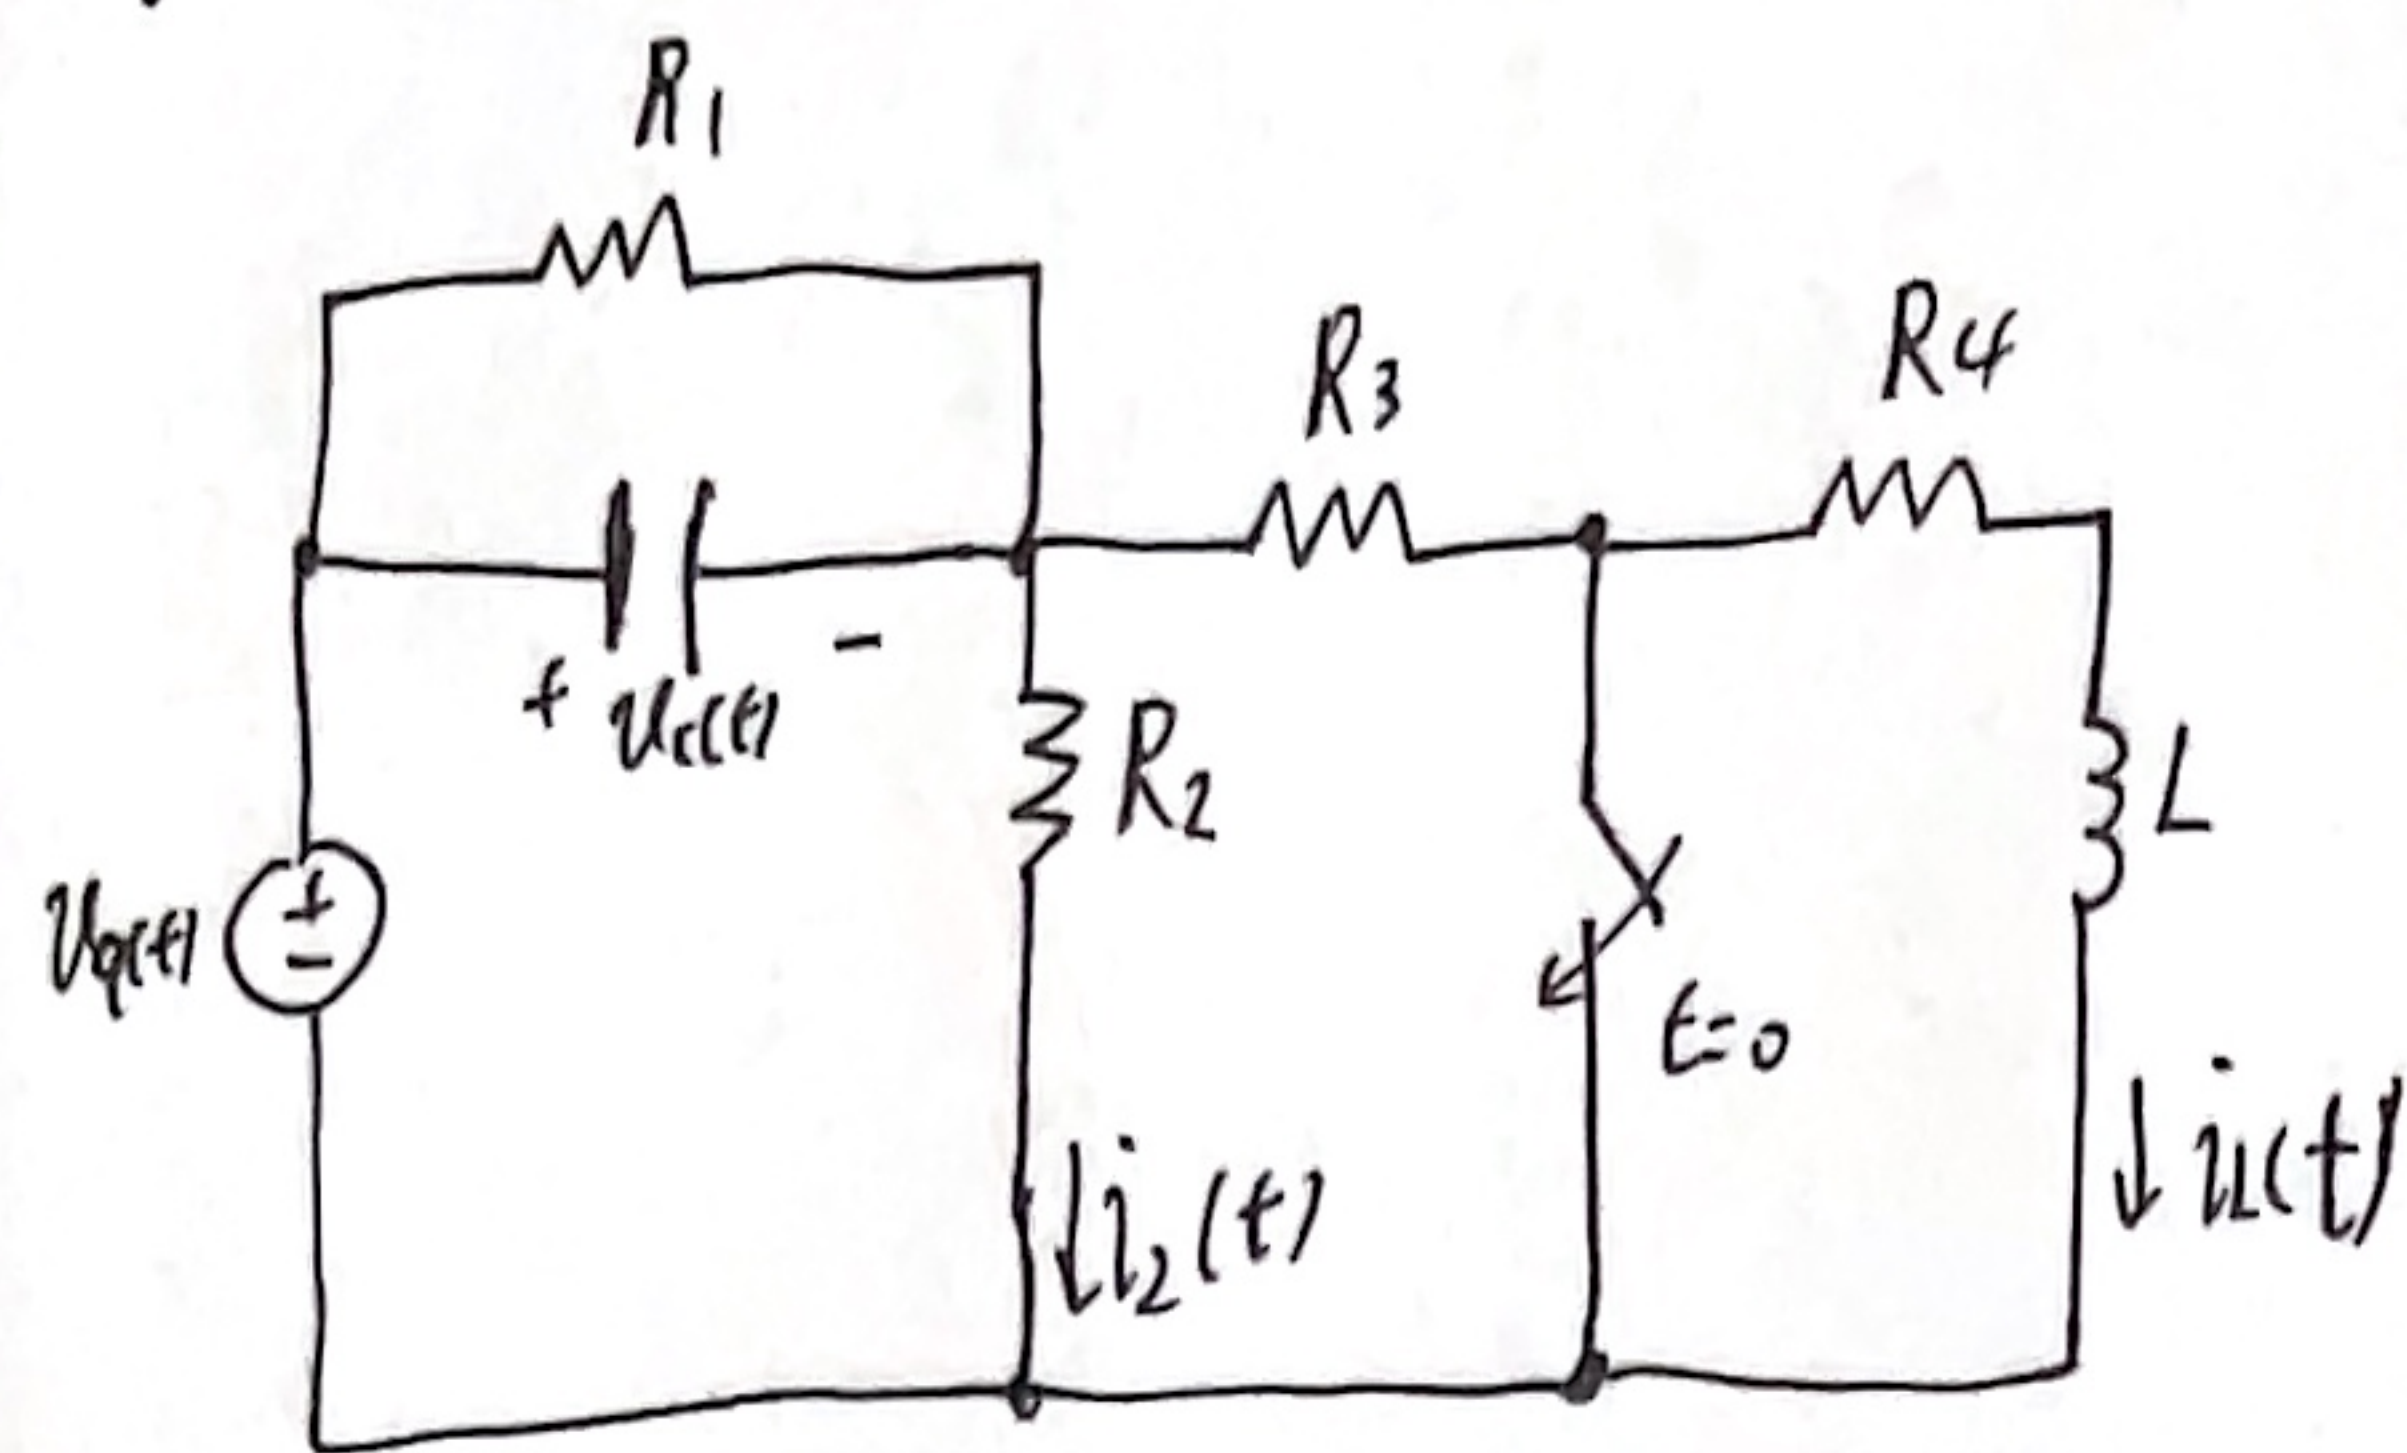 R1
R3
R4
+ Uc(t) -
R2
L
+
-
t=0
i2(t)
iL(t)